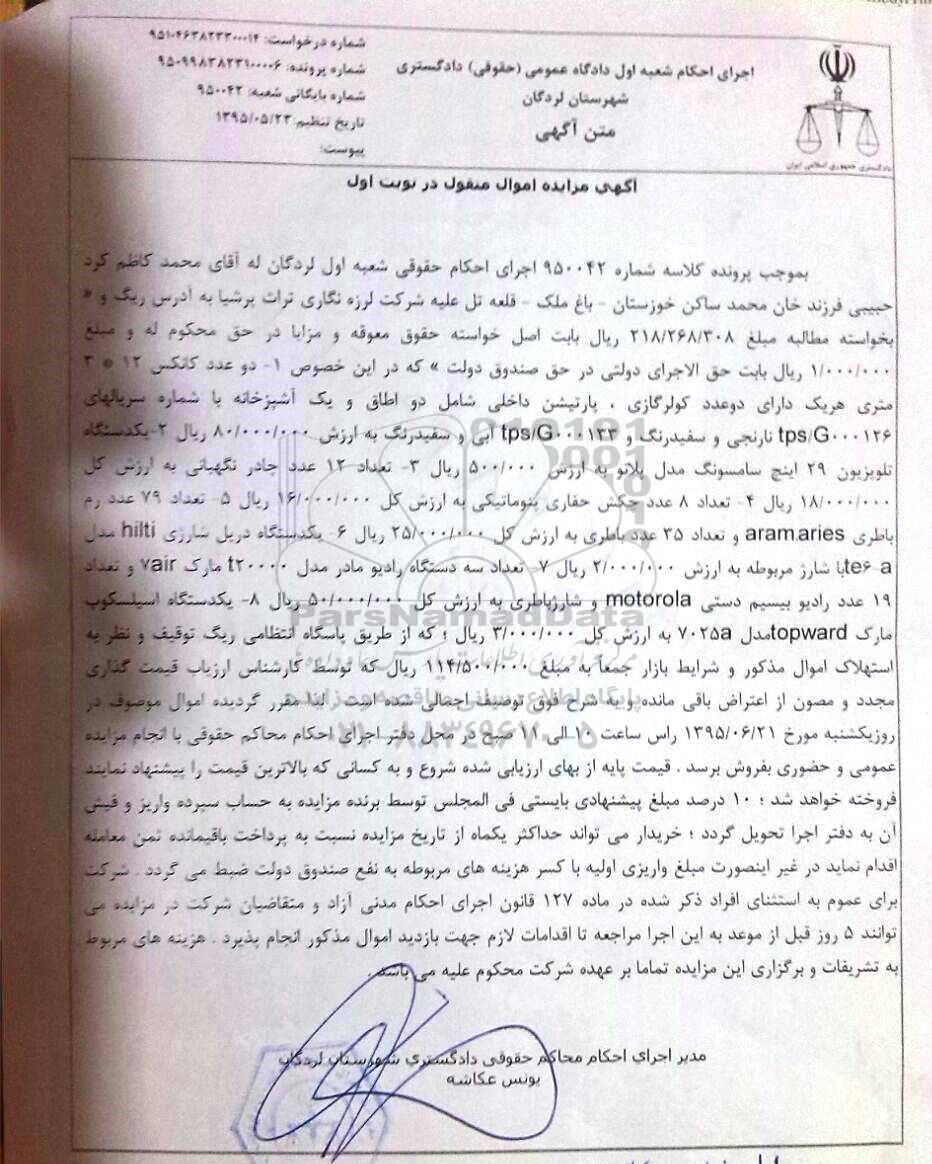 شماره درخواست: ۹۵۱۰۴۶۳۸۲۳۳۰۰۰۱۴
شماره پرونده: ۹۵۰۹۹۸۳۸۲۳۱۰۰۰۰۶
شماره بایگانی شعبه: ۹۵۰۰۴۲
تاریخ تنظیم: ۱۳۹۵/۰۵/۲۳
پیوست:
اجرای احکام شعبه اول دادگاه عمومی (حقوقی) دادگستری
شهرستان لردگان
متن آگهی
دادگستری جمهوری اسلامی ایران
آگهي مزایده اموال منقول در نوبت اول
بموجب پرونده کلاسه شماره ۹۵۰۰۴۲ اجرای احکام حقوقی شعبه اول لردگان له آقای محمد کاظم کرد
حبیبی فرزند خان محمد ساکن خوزستان - باغ ملک - قلعه تل علیه شرکت لرزه نگاری تراث پرشیا به آدرس ریگ و «
بخواسته مطالبه مبلغ ۲۱۸/۲۶۸/۳۰۸ ریال بابت اصل خواسته حقوق معوقه و مزایا در حق محکوم له و مبلغ
۱/۰۰۰/۰۰۰ ریال بابت حق الاجرای دولتی در حق صندوق دولت » که در این خصوص ۱- دو عدد کانکس ۱۲ * ۳
متری هریک دارای دوعدد کولرگازی ، پارتیشن داخلی شامل دو اطاق و یک آشپزخانه با شماره سریالهای
tps/G۰۰۰۱۲۶ نارنجی و سفیدرنگ و tps/G۰۰۰۱۳۳ آبی و سفیدرنگ به ارزش ۸۰/۰۰۰/۰۰۰ ریال ۲-یکدستگاه
تلویزیون ۲۹ اینچ سامسونگ مدل پلانو به ارزش ۵۰۰/۰۰۰ ریال ۳- تعداد ۱۲ عدد چادر نگهبانی به ارزش کل
۱۸/۰۰۰/۰۰۰ ریال ۴- تعداد ۸ عدد چکش حفاری پنوماتیکی به ارزش کل ۱۶/۰۰۰/۰۰۰ ریال ۵- تعداد ۷۹ عدد رم
باطری aram.aries و تعداد ۳۵ عدد باطری به ارزش کل ۲۵/۰۰۰/۰۰۰ ریال ۶- یکدستگاه دریل شارژی hilti مدل
te۶-a با شارژ مربوطه به ارزش ۲/۰۰۰/۰۰۰ ریال ۷- تعداد سه دستگاه رادیو مادر مدل t۲۰۰۰۰ مارک ۷air و تعداد
۱۹ عدد رادیو بیسیم دستی motorola و شارژباطری به ارزش کل ۵۰/۰۰۰/۰۰۰ ریال ۸- یکدستگاه اسیلسکوپ
مارک topward مدل ۷۰۲۵a به ارزش کل ۳/۰۰۰/۰۰۰ ریال ؛ که از طریق پاسگاه انتظامی ریگ توقیف و نظر به
استهلاک اموال مذکور و شرایط بازار جمعاً به مبلغ ۱۱۴/۵۰۰/۰۰۰ ریال که توسط کارشناس ارزیاب قیمت گذاری
مجدد و مصون از اعتراض باقی مانده و به شرح فوق توصیف اجمالی شده است . لذا مقرر گردیده اموال موصوف در
روزیکشنبه مورخ ۱۳۹۵/۰۶/۲۱ راس ساعت ۱۰ الی ۱۱ صبح در محل دفتر اجرای احکام محاکم حقوقی با انجام مزایده
عمومی و حضوری بفروش برسد . قیمت پایه از بهای ارزیابی شده شروع و به کسانی که بالاترین قیمت را پیشنهاد نمایند
فروخته خواهد شد ؛ ۱۰ درصد مبلغ پیشنهادی بایستی فی المجلس توسط برنده مزایده به حساب سپرده واریز و فیش
آن به دفتر اجرا تحویل گردد ؛ خریدار می تواند حداکثر یکماه از تاریخ مزایده نسبت به پرداخت باقیمانده ثمن معامله
اقدام نماید در غیر اینصورت مبلغ واریزی اولیه با کسر هزینه های مربوطه به نفع صندوق دولت ضبط می گردد . شرکت
برای عموم به استثنای افراد ذکر شده در ماده ۱۲۷ قانون اجرای احکام مدنی آزاد و متقاضیان شرکت در مزایده می
توانند ۵ روز قبل از موعد به این اجرا مراجعه تا اقدامات لازم جهت بازدید اموال مذکور انجام پذیرد . هزینه های مربوط
به تشریفات و برگزاری این مزایده تماما بر عهده شرکت محکوم علیه می باشد .
مدیر اجرای احکام محاکم حقوقی دادگستری شهرستان لردگان
یونس عکاشه
ParsNamadData
پایگاه اطلاع رسانی مناقصه و مزایده
۰۲۱-۸۸۳۴۹۶۷۰-۵